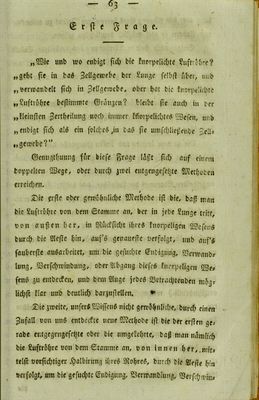 — 63 —
Erste Frage.
„Wie und wo endigt sich die knorpelichte Luftröhre?
„geht sie in das Zellgewebe der Lunge selbst über, und
„verwandelt sich in Zellgewebe, oder hat die knorpelichte
„Luftröhre bestimmte Gränzen? bleibt sie auch in der
„kleinsten Zertheilung noch immer knorpelichtes Wesen, und
„endigt sich als ein solches in das sie umschließende Zell-
„gewebe?“
Genugthuung für diese Frage läßt sich auf einem
doppelten Wege, oder durch zwei entgengesetzte Methoden
erreichen.
Die erste oder gewöhnliche Methode ist die, daß man
die Luftröhre von dem Stamme an, der in jede Lunge tritt,
von außen her, in Rücksicht ihres knorpeligen Wesens
durch die Aeste hin, auf's genaueste verfolgt, und auf's
sauberste ausarbeitet, um die gesuchte Endigung, Verwand-
lung, Verschwindung, oder Abgang dieses knorpeligen We-
sens zu entdecken, und dem Auge jedes Betrachtenden mög-
lichst klar und deutlich darzustellen.
Die zweite, unsers Wissens nicht gewöhnliche, durch einen
Zufall von uns entdeckte neue Methode ist die der ersten ge-
rade entgegengesetzte oder die umgekehrte, daß man nämlich
die Luftröhre von dem Stamme an, von innen her, mit-
telst vorsichtiger Halbirung ihres Rohres, durch die Aeste hin
verfolgt, um die gesuchte Endigung, Verwandlung, Verschwin-